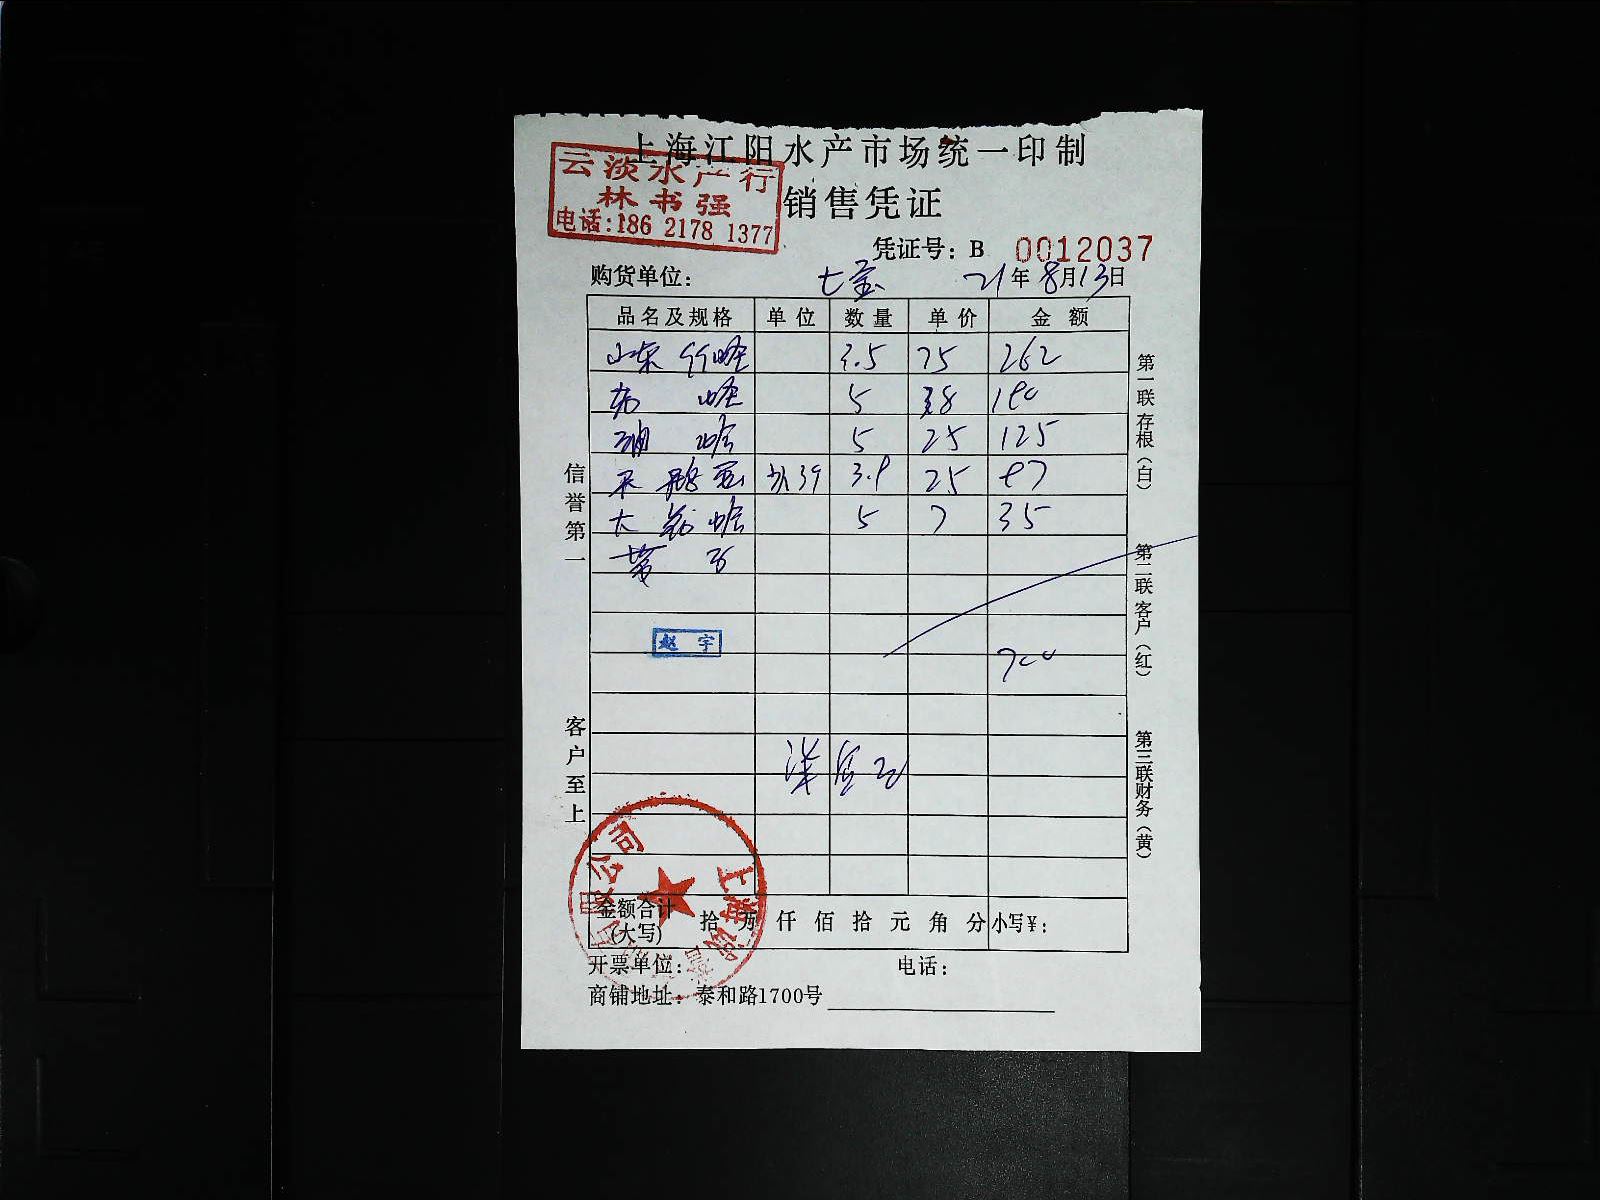 上海江阳水产市场统一印制
云淡水产行
林书强
电话:186 2178 1377
销售凭证
凭证号: B 0012037
购货单位: 七宝 21年8月13日
品名及规格 单位 数量 单价 金额
山东竹蛏 3.5 75 262
蛏 5 38 190
蛤 5 25 125
3.9 25 97
大 蛤 5 7 35
赵宇
700
金额合计(大写) 拾 万 仟 佰 拾 元 角 分 小写¥:
开票单位: 电话:
商铺地址: 泰和路1700号
信誉第一
客户至上
第一联存根(白)
第二联客户(红)
第三联财务(黄)
上海
公司